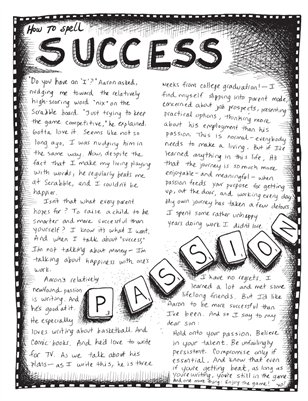 How to spell
SUCCESS
"Do you have an 'I'?" Aaron asked,
nudging me toward the relatively
high-scoring word "nix" on the
Scrabble board. "Just trying to keep
the game competitive," he explained.
Gotta love it. Seems like not so
long ago, I was nudging him in
the same way. Now, despite the
fact that I make my living playing
with words, he regularly beats me
at Scrabble, and I couldn't be
happier.
Isn't that what every parent
hopes for? To raise a child to be
smarter and more successful than
yourself? I know it's what I want.
And when I talk about "success"
I'm not talking about money—I'm
talking about happiness with one's
work.
Aaron's relatively
newfound passion
is writing. And
he's good at it.
He especially
loves writing about basketball. And
comic books. And he'd love to write
for TV. As we talk about his
plans—as I write this, he is three
weeks from college graduation!—I
find myself slipping into parent mode,
concerned about job prospects, presenting
practical options, thinking more
about his employment than his
passion. This is normal—everybody
needs to make a living. But if I've
learned anything in this life, it's
that the journey is so much more
enjoyable—and meaningful—when
passion feeds your purpose for getting
up, out the door, and working every day.
My own journey has taken a few detours.
I spent some rather unhappy
years doing work I didn't love.
PASSION
I have no regrets, I
learned a lot and met some
lifelong friends. But I'd like
Aaron to be more successful than
I've been. And so I say to my
dear son:
Hold onto your passion. Believe
in your talent. Be unfailingly
persistent. Compromise only if
essential. And know that even if
you're getting beat, as long as
you're writing, you're still in the game.
And one more thing: Enjoy the game!